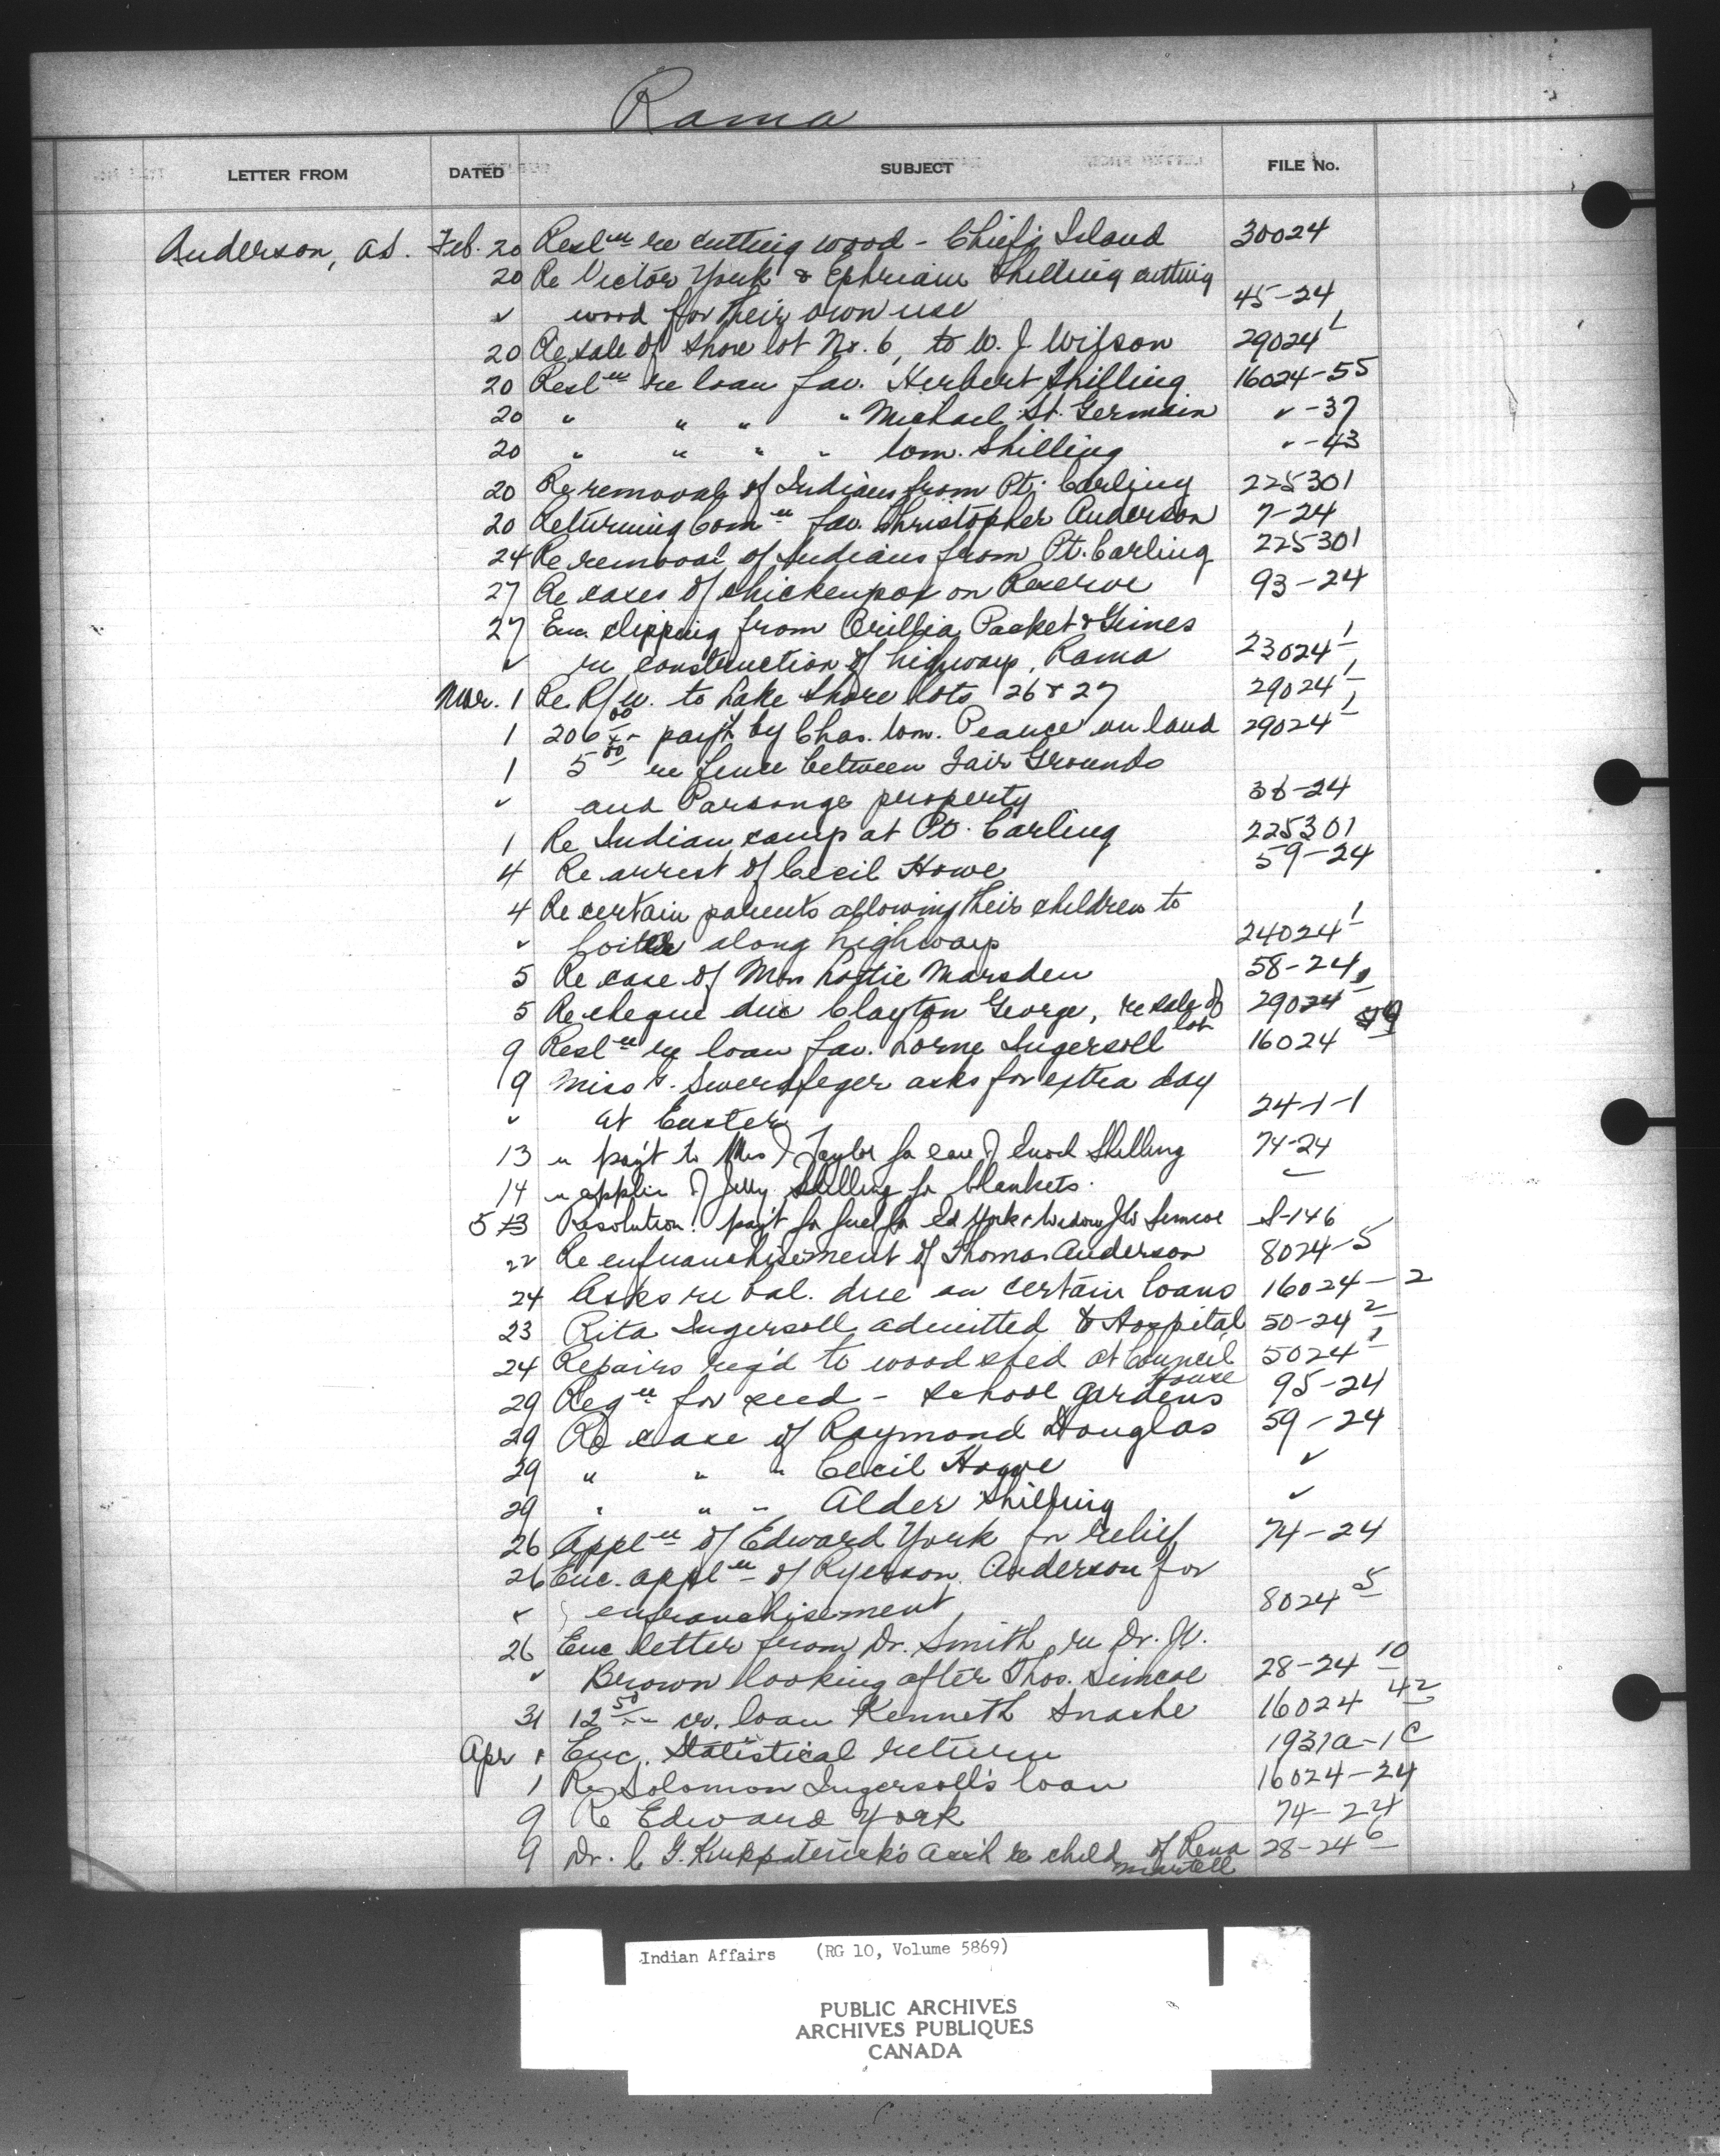 Rama
LETTER FROM DATED SUBJECT FILE No.
Anderson, A.S. Feb. 20 Resl'n re cutting wood - Chief's Island 30024
20 Re Victor York & Ephriam Shilling cutting
✓ wood for their own use 45-24
20 Re sale of shore lot No. 6, to W. J. Wilson 29024 1
20 Resl'n re loan fav. Herbert Shilling 16024-55
20 " " " " Michael St. Germain ✓-37
20 " " " " Wm. Shilling ✓-43
20 Re removal of Indians from Pt. Carling 225301
20 Returning Com'n fav. Christopher Anderson 7-24
24 Re removal of Indians from Pt. Carling 225301
27 Re cases of chickenpox on Reserve 93-24
27 Enc. clipping from Orillia Packet & Times
✓ re construction of highway, Rama 23024-1
Mar. 1 Re R/W. to Lake Shore Lots 26 & 27 29024-1
1 206.00 paym't by Chas. Wm. Pearce on land 29024-1
1 5.00 re fence between Fair Grounds
✓ and Parsonge property 36-24
1 Re Indian camp at Pt. Carling 225301
4 Re arrest of Cecil Howe 59-24
4 Re certain parents allowing their children to
✓ loiter along highway 24024-1
5 Re case of Mrs Lottie Marsden 58-24
5 Re cheque due Clayton George, re sale of lot 29024 1
9 Resl'n re loan fav. Lorne Ingersoll 16024 59
9 Miss Swerdfeger asks for extra day
✓ at Easter 24-1-1
13 " pay't to Mrs J Taylor for care of Enoch Shilling 74-24
14 " applic of Jelly Shilling for blankets. ✓
5 13 Resolution: pay't for fuel for Ed York & Widow J W Simcoe S-146
22 Re enfranchisement of Thomas Anderson 8024-5
24 Asks re bal. due on certain loans 16024-2
23 Rita Ingersoll admitted to Hospital 50-24 2
24 Repairs req'd to woodshed at Council House 5024-1
29 Reqn for seed - school gardens 95-24
29 Re case of Raymond Douglas 59-24
29 " " " Cecil Howe ✓
29 " " " Alder Shilling ✓
26 Appl'n of Edward York for relief 74-24
26 Enc. appl'n of Ryerson Anderson for
✓ enfranchisement 8024 5
26 Enc letter from Dr. Smith re Dr. W.
✓ Brown looking after Thos. Simcoe 28-24 10
31 12.50 cr. loan Kenneth Snache 16024 42
Apr 1 Enc. Statistical return 1931a-1C
1 Re Solomon Ingersoll's loan 16024-24
9 Re Edward York 74-24
9 Dr. C G. Kirkpatrick's acc't re child of Rena Martell 28-24 6
Indian Affairs (RG 10, Volume 5869)
PUBLIC ARCHIVES
ARCHIVES PUBLIQUES
CANADA